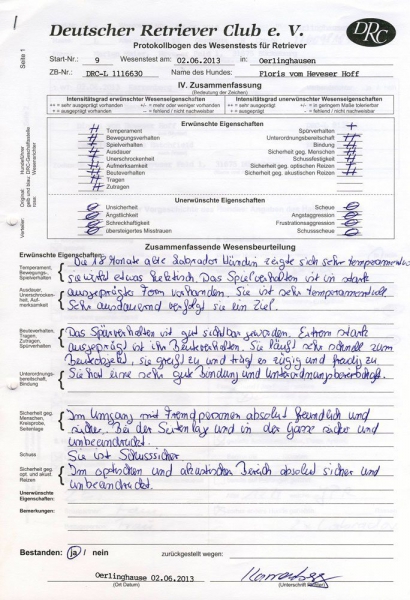 Deutscher Retriever Club e. V.
DRC
Protokollbogen des Wesenstests für Retriever
Seite 1
Start-Nr.: 9 Wesenstest am: 02.06.2013 in: Oerlinghausen
ZB-Nr.: DRC-L 1116630 Name des Hundes: Floris vom Heveser Hoff
IV. Zusammenfassung
(Bedeutung der Zeichen)
Intensitätsgrad erwünschter Wesenseigenschaften Intensitätsgrad unerwünschter Wesenseigenschaften
++ = sehr ausgeprägt vorhanden +/- = mehr oder weniger vorhanden ++ = sehr ausgeprägt vorhanden +/- = in geringem Maße tolerierbar
+ = ausgeprägt vorhanden – = fehlend / nicht nachweisbar + = ausgeprägt vorhanden – = fehlend / nicht nachweisbar
Erwünschte Eigenschaften
Temperament Spürverhalten +
Bewegungsverhalten Unterordnungsbereitschaft
Spielverhalten Bindung
Ausdauer Sicherheit geg. Menschen
Unerschrockenheit Schussfestigkeit
Aufmerksamkeit Sicherheit geg. optischen Reizen
Beuteverhalten Sicherheit geg. akustischen Reizen
Tragen
Zutragen
Unerwünschte Eigenschaften
Unsicherheit Scheue
Ängstlichkeit Angstaggression
Schreckhaftigkeit Frustrationsaggression
übersteigertes Misstrauen Schussscheue
Zusammenfassende Wesensbeurteilung
Erwünschte Eigenschaften:
Temperament, Bewegungsverhalten, Spielverhalten
Die 18 Monate alte Labrador Hündin zeigte sich sehr temperamentvoll
sie wirkt etwas hektisch. Das Spielverhalten ist in stark
Ausdauer, Unerschrockenheit, Aufmerksamkeit
ausgeprägter Form vorhanden. Sie ist sehr temperamentvoll.
Sehr ausdauernd verfolgt sie ein Ziel.
Beuteverhalten, Tragen, Zutragen, Spürverhalten
Das Spürverhalten ist gut sichtbar geworden. Extrem stark
ausgeprägt ist ihr Beuteverhalten. Sie läuft sehr schnell zum
Beuteobjekt, sie greift zu und trägt es zügig und freudig zu
Unterordnungsbereitschaft, Bindung
Sie hat eine sehr gute Bindung und Unterordnungsbereitschaft.
Sicherheit geg. Menschen, Kreisprobe, Seitenlage
Im Umgang mit Fremdpersonen absolut freundlich und
sicher. Bei der Seitenlage und in der Gasse sicher und
unbeeindruckt.
Schuss
Sie ist Schusssicher
Sicherheit geg. opt. und akust. Reizen
Im optischen und akustischen Bereich absolut sicher und
unbeeindruckt.
Unerwünschte Eigenschaften:
Bemerkungen:
Bestanden: ja / nein zurückgestellt wegen:
Oerlinghause 02.06.2013
(Ort Datum) (Unterschrift Richter)